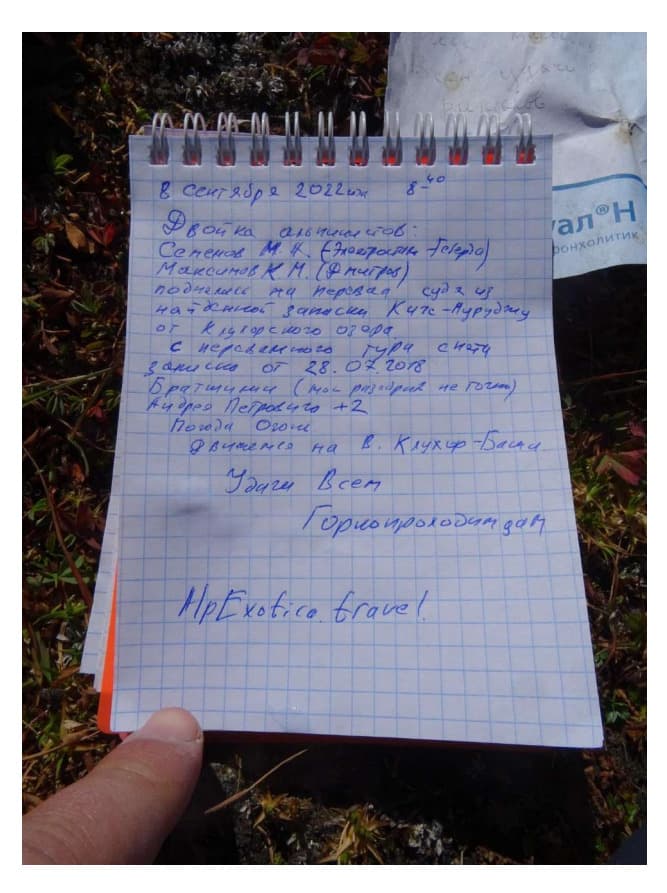 8 сентября 2022 г. 8-40
Двойка альпинистов:
Семенов М.К. (Электросталь-Теберда)
Максимов К.М. (Дмитров)
поднялись на перевал судя из
найденной записки Кичи-Муруджу
от Клухорского озера
с перевального тура снята
записка от 28.07.2018
Братишкина (мог разобрать не точно)
Андрея Петровича +2
Погода Огонь
Движемся на В. Клухор-Баши
Удачи Всем
Горнопроходимцам
AlpExotica.travel
ал®Н
ронхолитик